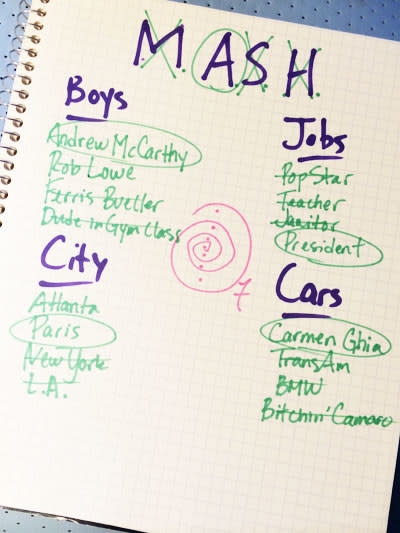 M.A.S.H.
Boys
Andrew McCarthy
Rob Lowe
Ferris Bueller
Dude in Gym Class
City
Atlanta
Paris
New York
L.A.
7
Jobs
Pop Star
Teacher
Janitor
President
Cars
Carmen Ghia
TransAm
BMW
Bitchin' Camaro